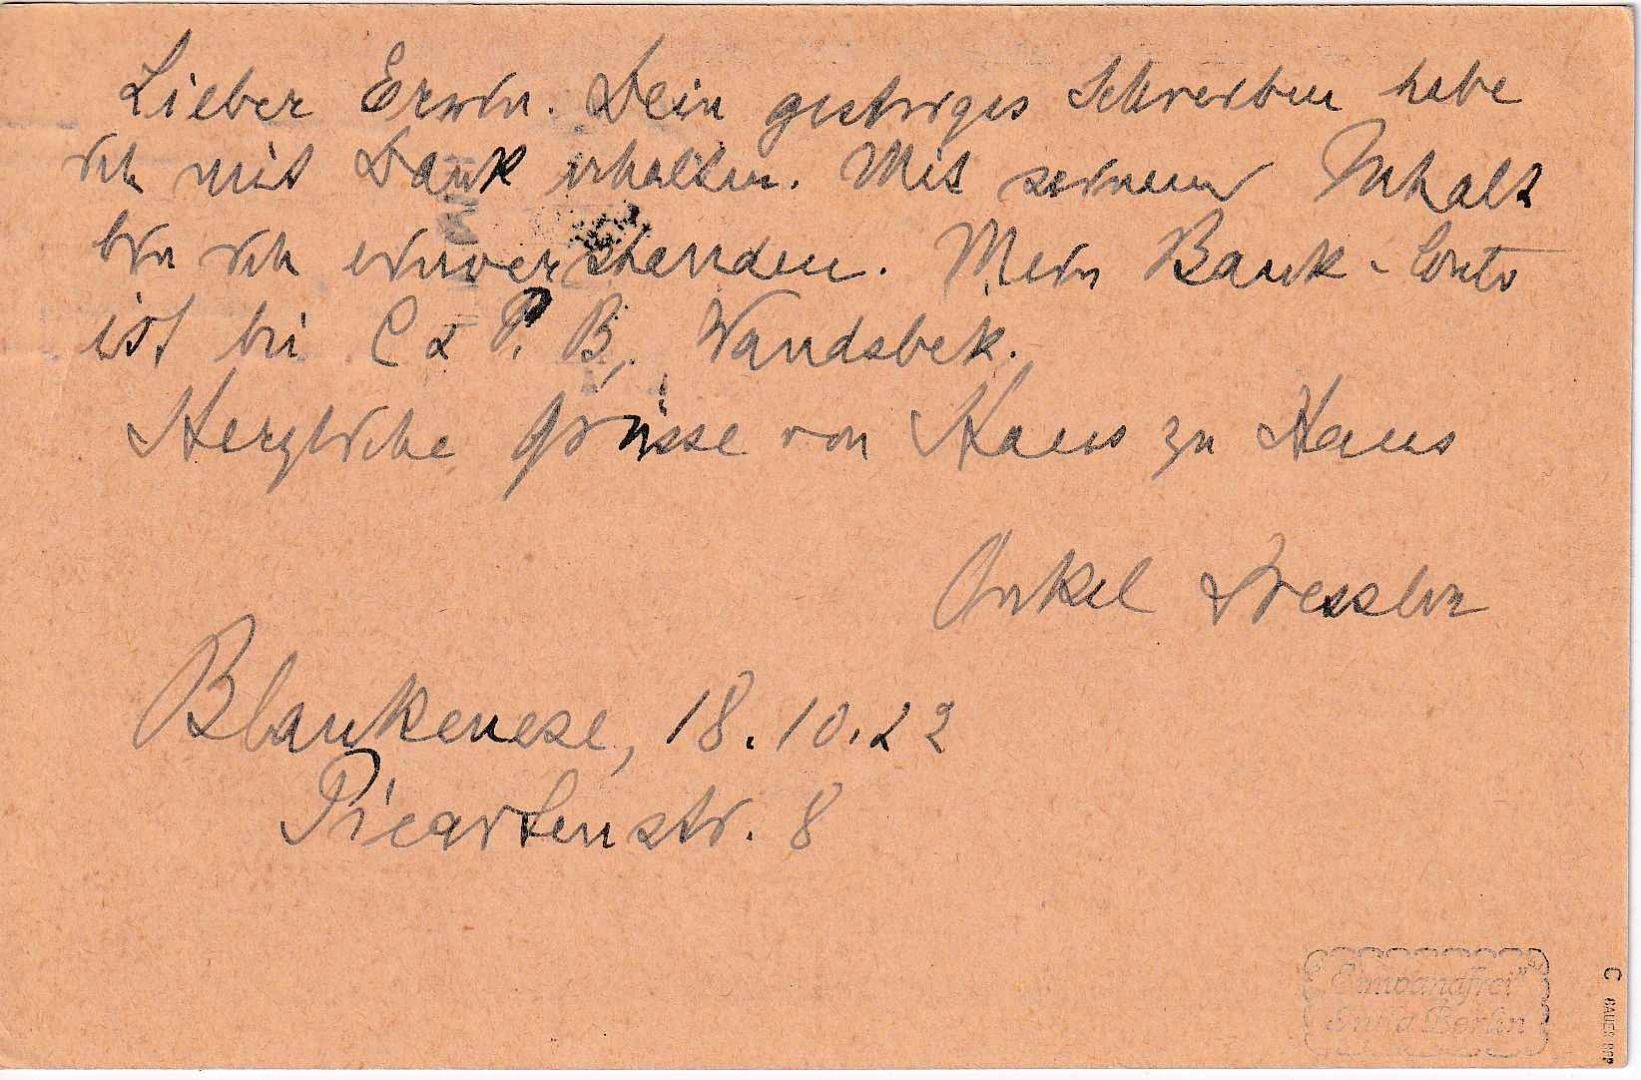 Lieber Erwin. Dein gestriges Schreiben habe
ich mit Dank erhalten. Mit seinem Inhalt
bin ich einverstanden. Mein Bank-Conto
ist bei C & P. B, Wandsbek.
Herzliche Grüsse von Haus zu Haus
Onkel Dressler
Blankenese, 18.10.22
Picartenstr. 8
Berlin
C BAUER BPP